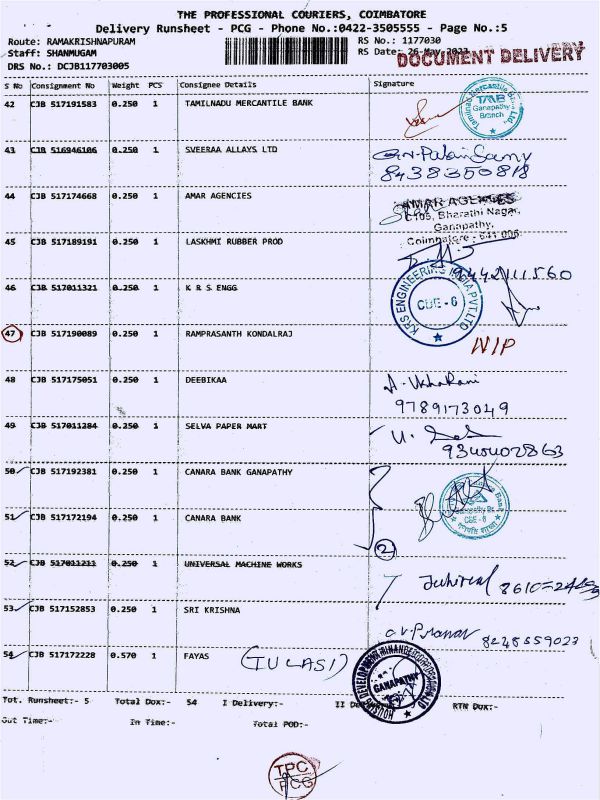 THE PROFESSIONAL COURIERS, COIMBATORE
Delivery Runsheet - PCG - Phone No.:0422-3505555 - Page No.:5
Route: RAMAKRISHNAPURAM RS No.: 1177030
Staff: SHANMUGAM RS Date: 26-May-2023
DOCUMENT DELIVERY
DRS No.: DCJB117703005
S No Consignment No Weight PCS Consignee Details Signature
42 CJB 517191583 0.250 1 TAMILNADU MERCANTILE BANK
Tamilnad Mercantile Bank Ltd.
TMB
Ganapathy
Branch
43 CJB 516946106 0.250 1 SVEERAA ALLAYS LTD
8438350818
44 CJB 517174668 0.250 1 AMAR AGENCIES
AMAR AGENCIES
C105, Bharathi Nagar,
Ganapathy,
Coimbatore - 641 006
45 CJB 517189191 0.250 1 LASKHMI RUBBER PROD
9442111560
46 CJB 517011321 0.250 1 K R S ENGG
KRS ENGINEERING INDIA PVT LTD
CBE - 6
47 CJB 517190089 0.250 1 RAMPRASANTH KONDALRAJ
NIP
48 CJB 517175051 0.250 1 DEEBIKAA
A. UshaRani
9789173049
49 CJB 517011284 0.250 1 SELVA PAPER MART
50 CJB 517192381 0.250 1 CANARA BANK GANAPATHY
51 CJB 517172194 0.250 1 CANARA BANK
CBE - 6
2
52 CJB 517011211 0.250 1 UNIVERSAL MACHINE WORKS
53 CJB 517152853 0.250 1 SRI KRISHNA
8248559023
54 CJB 517172228 0.570 1 FAYAS
(TULASI)
GANAPATHY
Tot. Runsheet:- 5 Total Dox:- 54 I Delivery:- II De RTN Dox:-
Out Time:- In Time:- Total POD:-
TPC
PCG